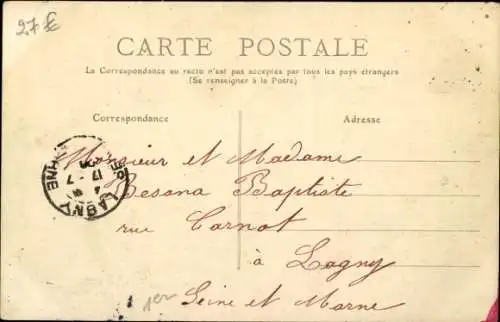 27 €
CARTE POSTALE
La Correspondance au recto n'est pas acceptée par tous les pays étrangers
(Se renseigner à la Poste)
Correspondance Adresse
Monsieur et Madame
Besana Baptiste
rue Carnot
à Lagny
Seine et Marne
LAGNY
17
7